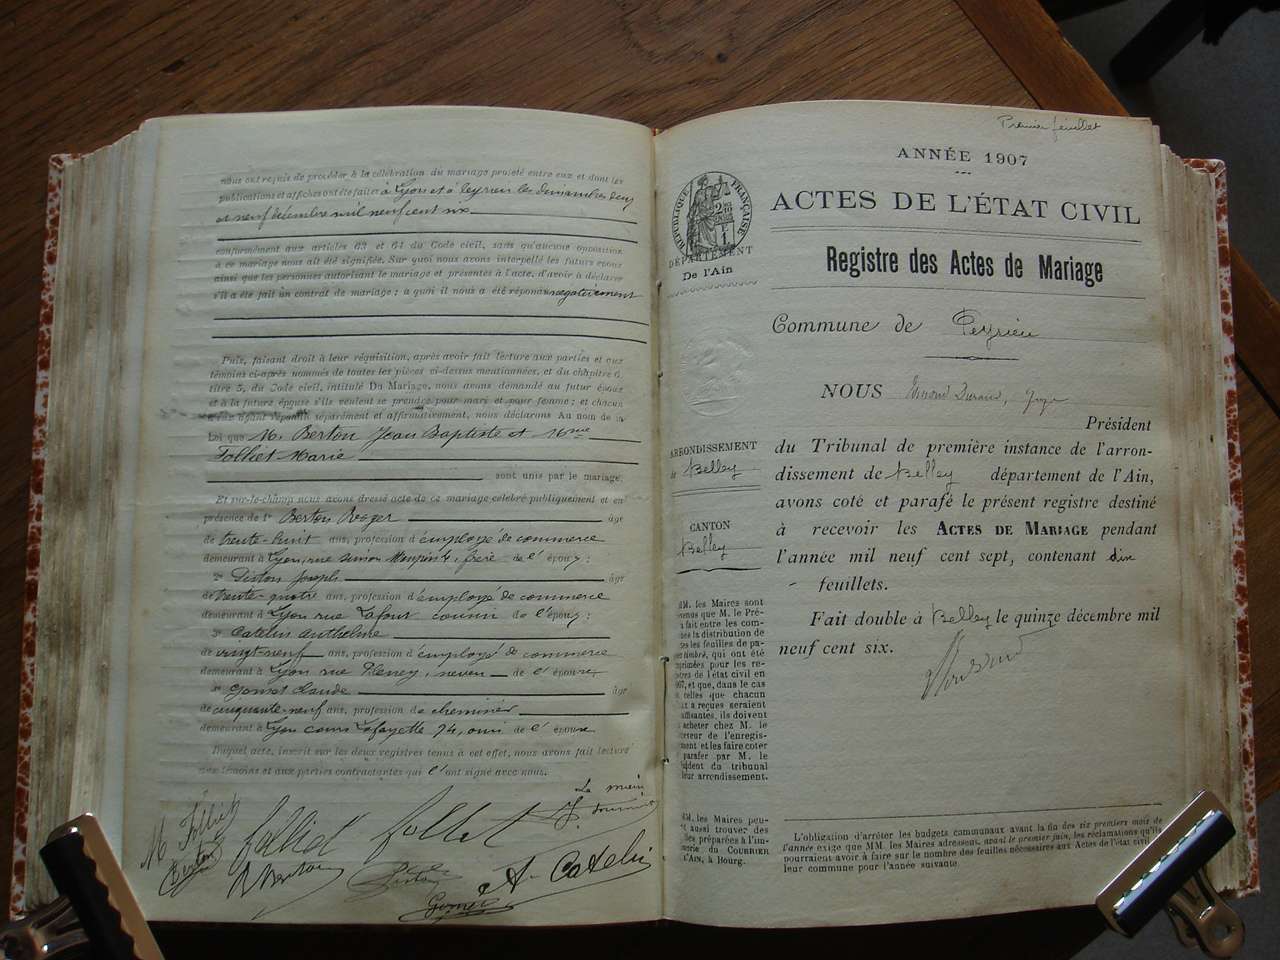 nous ont requis de procéder à la célébration du mariage projeté entre eux et dont les
publications et affiches ont été faites à Lyon et à Peyrieu les dimanches deux
et neuf décembre mil neuf cent six
conformément aux articles 63 et 64 du Code civil, sans qu'aucune opposition
à ce mariage nous ait été signifiée. Sur quoi nous avons interpellé les futurs époux
ainsi que les personnes autorisant le mariage et présentes à l'acte, d'avoir à déclarer
s'il a été fait un contrat de mariage ; à quoi il nous a été répondu négativement
Puis, faisant droit à leur réquisition, après avoir fait lecture aux parties et aux
témoins ci-après nommés de toutes les pièces ci-dessus mentionnées, et du chapitre 6,
titre 5, du Code civil, intitulé Du Mariage, nous avons demandé au futur époux
et à la future épouse s'ils veulent se prendre pour mari et pour femme ; et chacun
d'eux ayant répondu séparément et affirmativement, nous déclarons Au nom de la
Loi que M. Berton Jean Baptiste et Mme
Folliet Marie
sont unis par le mariage.
Et sur-le-champ nous avons dressé acte de ce mariage célébré publiquement et en
présence de 1° Berton Roger âgé
de trente-huit ans, profession d'employé de commerce
demeurant à Lyon, rue 4, frère de l'époux ;
2° Joseph âgé
de trente-quatre ans, profession d'employé de commerce
demeurant à Lyon rue Lafont cousin de l'époux ;
3° Catelin Anthelme
de vingt-neuf ans, profession d'employé de commerce
demeurant à Lyon rue Fleury, neveu de l'épouse
4° Gonet Claude âgé
de cinquante-neuf ans, profession de cheminier
demeurant à Lyon cours Lafayette 74, ami de l'épouse
Duquel acte, inscrit sur les deux registres tenus à cet effet, nous avons fait lecture
aux témoins et aux parties contractantes qui l'ont signé avec nous.
Le maire
M Folliet
Folliet Folliet
Berton
R Berton
A. Catelin
Gonet
Premier feuillet
ANNÉE 1907
ACTES DE L'ÉTAT CIVIL
RÉPUBLIQUE FRANÇAISE
DÉPARTEMENT
De l'Ain
Registre des Actes de Mariage
Commune de Peyrieu
NOUS Durand, Juge
Président
du Tribunal de première instance de l'arron-
dissement de Belley département de l'Ain,
avons coté et parafé le présent registre destiné
à recevoir les ACTES DE MARIAGE pendant
l'année mil neuf cent sept, contenant dix
feuillets.
Fait double à Belley le quinze décembre mil
neuf cent six.
ARRONDISSEMENT
Belley
CANTON
Belley
MM. les Maires sont
venus que M. le Pré-
fait entre les com-
es la distribution de
es feuilles de pa-
timbré, qui ont été
primées pour les re-
res de l'état civil en
907, et que, dans le cas
celles que chacun
a reçues seraient
uffisantes, ils doivent
acheter chez M. le
eveur de l'enregis-
ment et les faire coter
parafer par M. le
sident du tribunal
leur arrondissement.
MM. les Maires peu-
t aussi trouver des
es préparées à l'im-
merie du COURRIER
L'AIN, à Bourg.
L'obligation d'arrêter les budgets communaux avant la fin des six premiers mois de
l'année exige que MM. les Maires adressent, avant le premier juin, les réclamations qu'ils
pourraient avoir à faire sur le nombre des feuilles nécessaires aux Actes de l'état civil
leur commune pour l'année suivante.